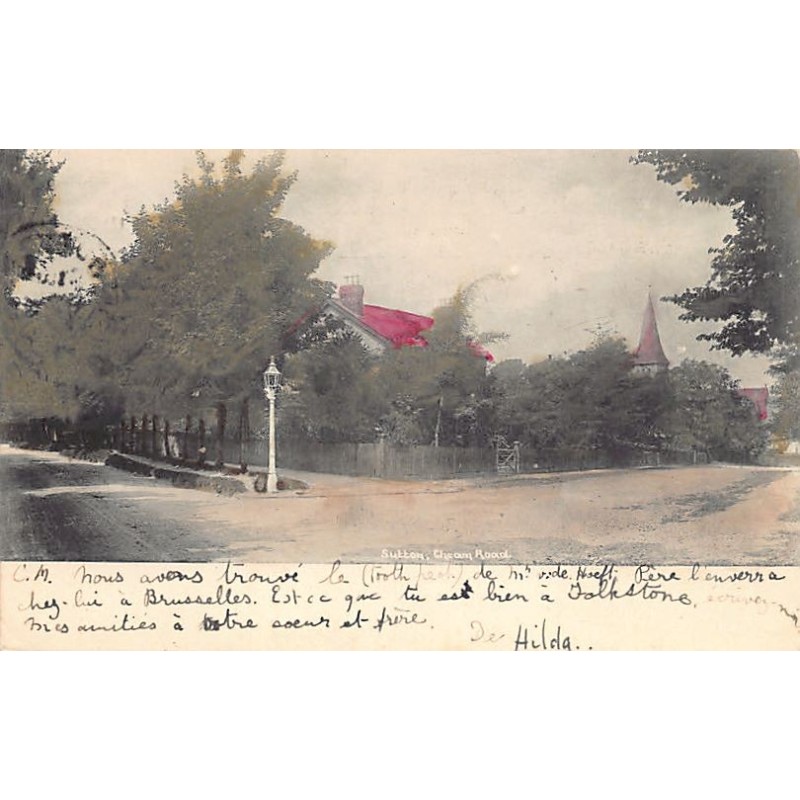 Sutton, Cheam Road
C.M. Nous avons trouvé le (Tooth de Mr v. de. Hoeft. Père l'enverra
chez-lui à Brusselles. Est ce que tu est bien à Folkstone, écrivez-
Mes amitiés à votre soeur et frère.
De Hilda..